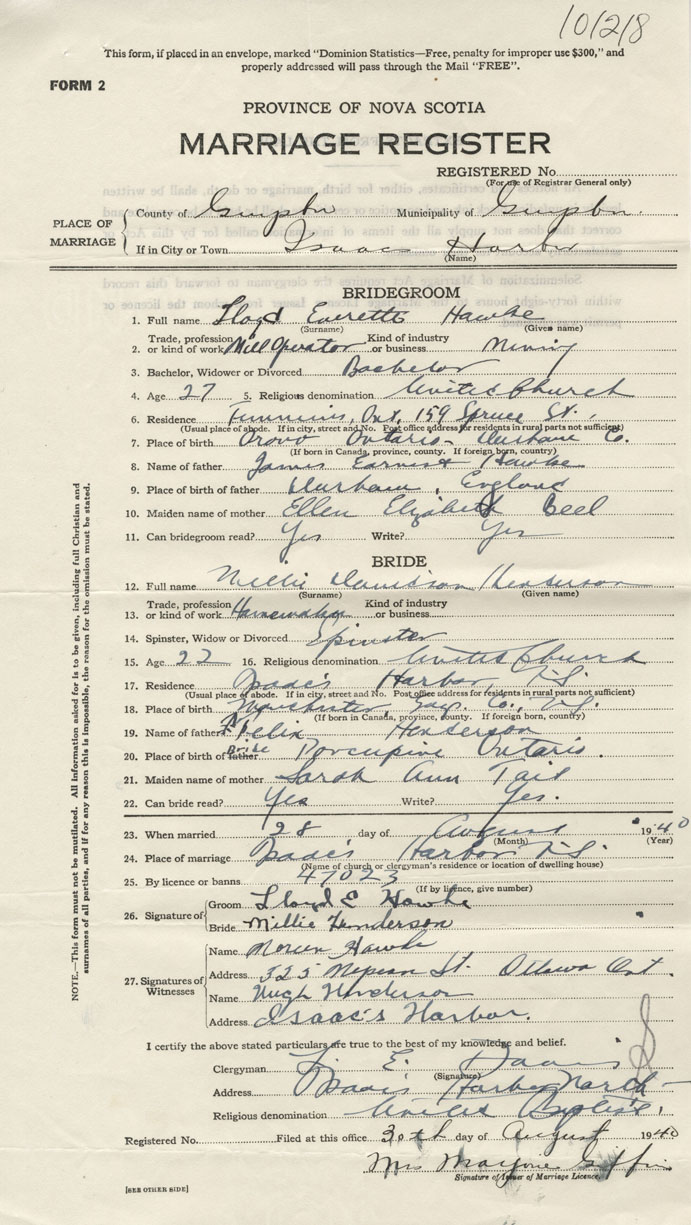 10/2/8
This form, if placed in an envelope, marked "Dominion Statistics—Free, penalty for improper use $300," and
properly addressed will pass through the Mail "FREE".
FORM 2
PROVINCE OF NOVA SCOTIA
MARRIAGE REGISTER
REGISTERED No.
(For use of Registrar General only)
PLACE OF MARRIAGE
County of Guysboro Municipality of Guysboro
If in City or Town Isaac Harbor
(Name)
BRIDEGROOM
1. Full name Lloyd Everette Hawke
(Surname) (Given name)
2. Trade, profession or kind of work Mill Operator Kind of industry or business Mining
3. Bachelor, Widower or Divorced Bachelor
4. Age 27 5. Religious denomination United Church
6. Residence Timmins, Ont. 159 Spruce St.
(Usual place of abode. If in city, street and No. Post office address for residents in rural parts not sufficient)
7. Place of birth Orono Ontario - Durham Co.
(If born in Canada, province, county. If foreign born, country)
8. Name of father James Earnest Hawke
9. Place of birth of father Durham, England
10. Maiden name of mother Ellen Elizabeth Beel
11. Can bridegroom read? Yes Write? Yes
BRIDE
12. Full name Millie Davidson Henderson
(Surname) (Given name)
13. Trade, profession or kind of work Homemaker Kind of industry or business
14. Spinster, Widow or Divorced Spinster
15. Age 22 16. Religious denomination United Church
17. Residence Isaac's Harbor, N.S.
(Usual place of abode. If in city, street and No. Post office address for residents in rural parts not sufficient)
18. Place of birth Manchester, Guy. Co., N.S.
(If born in Canada, province, county. If foreign born, country)
19. Name of father Felix Henderson
20. Place of birth of father Bride Porcupine Ontario.
21. Maiden name of mother Sarah Ann Tait
22. Can bride read? Yes Write? Yes.
23. When married 28 day of August 1940
(Month) (Year)
24. Place of marriage Isaac's Harbor N.S.
(Name of church or clergyman's residence or location of dwelling house)
25. By licence or banns 47023
(If by licence, give number)
26. Signature of
Groom Lloyd E Hawke
Bride Millie Henderson
27. Signatures of Witnesses
Name Noreen Hawke
Address 325 Nepean St. Ottawa Ont.
Name Hugh Henderson
Address Isaac's Harbor.
I certify the above stated particulars are true to the best of my knowledge and belief.
Clergyman E. Davis
(Signature)
Address Isaac's Harbor North
Religious denomination United Baptist,
Registered No. Filed at this office 30th day of August 1940
Mrs Marjorie Giffin
Signature of Issuer of Marriage Licence.
[SEE OTHER SIDE]
NOTE.—This form must not be mutilated. All information asked for is to be given, including full Christian and
surnames of all parties, and if for any reason this is impossible, the reason for the omission must be stated.